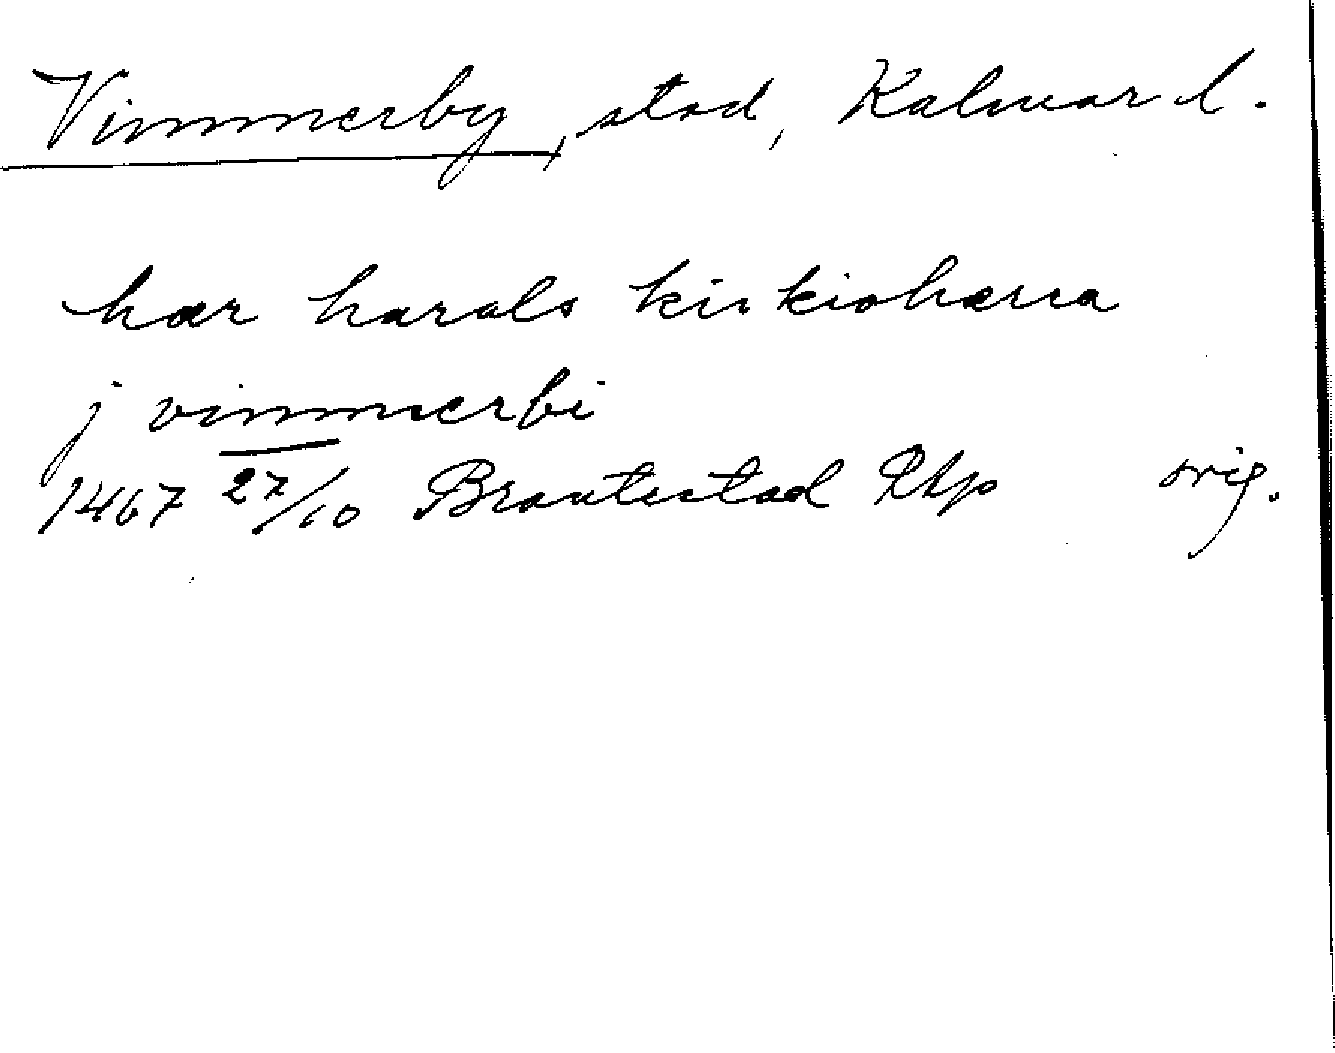 Vimmerby, stad, Kalmar l.
hær harals kirkiohærra
j vimmerbi
1467 27/10 Brantestad RAp orig.